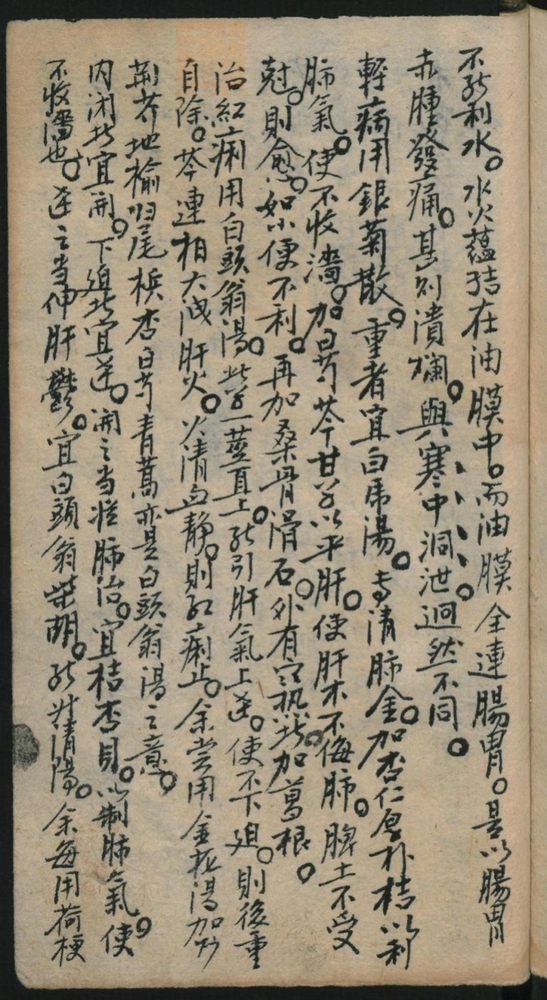 不能利水。水火蘊結在油膜中。而油膜全連腸胃。是以腸胃
赤腫發痛。甚則潰爛。與寒中洞泄迥然不同。
輕病用銀菊散。重者宜白虎湯。专清肺金。加杏仁厚朴桔以利
肺氣。使不收濇。加白芍芩甘草以平肝。使肝木不侮肺。脾土不受
尅。則愈。如小便不利。再加桑骨滑石。外有热者加葛根。
治紅痢用白頭翁湯。此草一莖直上。能引肝氣上达。使不下迫。則後重
自除。芩連柏大泄肝火。火清血静。則紅痢止。余嘗用金花湯加炒
荊芥地榆归尾槟杏白芍青蒿亦是白頭翁湯之意。
内閉者宜開。下迫者宜达。開之當從肺治。宜桔杏貝。以制肺氣。使
不收濇也。达之當伸肝鬱。宜白頭翁柴胡。能升清陽。余每用荷梗